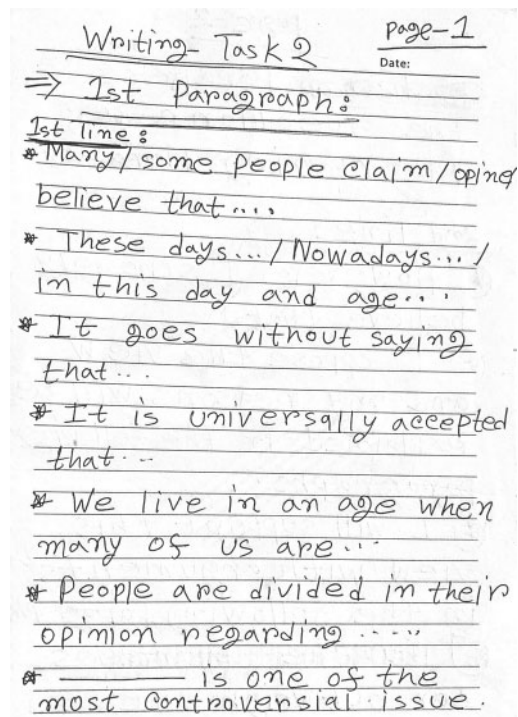 page-1
Writing- Task 2
Date:
⇒ 1st Paragraph:
1st line:
* Many/some people claim/opine/
believe that....
* These days.../Nowadays.../
in this day and age...
* It goes without saying
that...
* It is universally accepted
that...
* We live in an age when
many of us are...
* People are divided in their
opinion regarding .....
* ——— is one of the
most controversial issue.